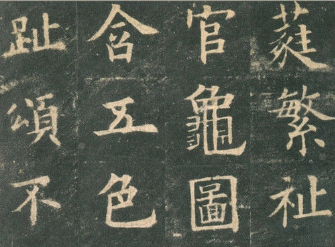 蕤繁祉
官龜圖
含五色
趾頌不